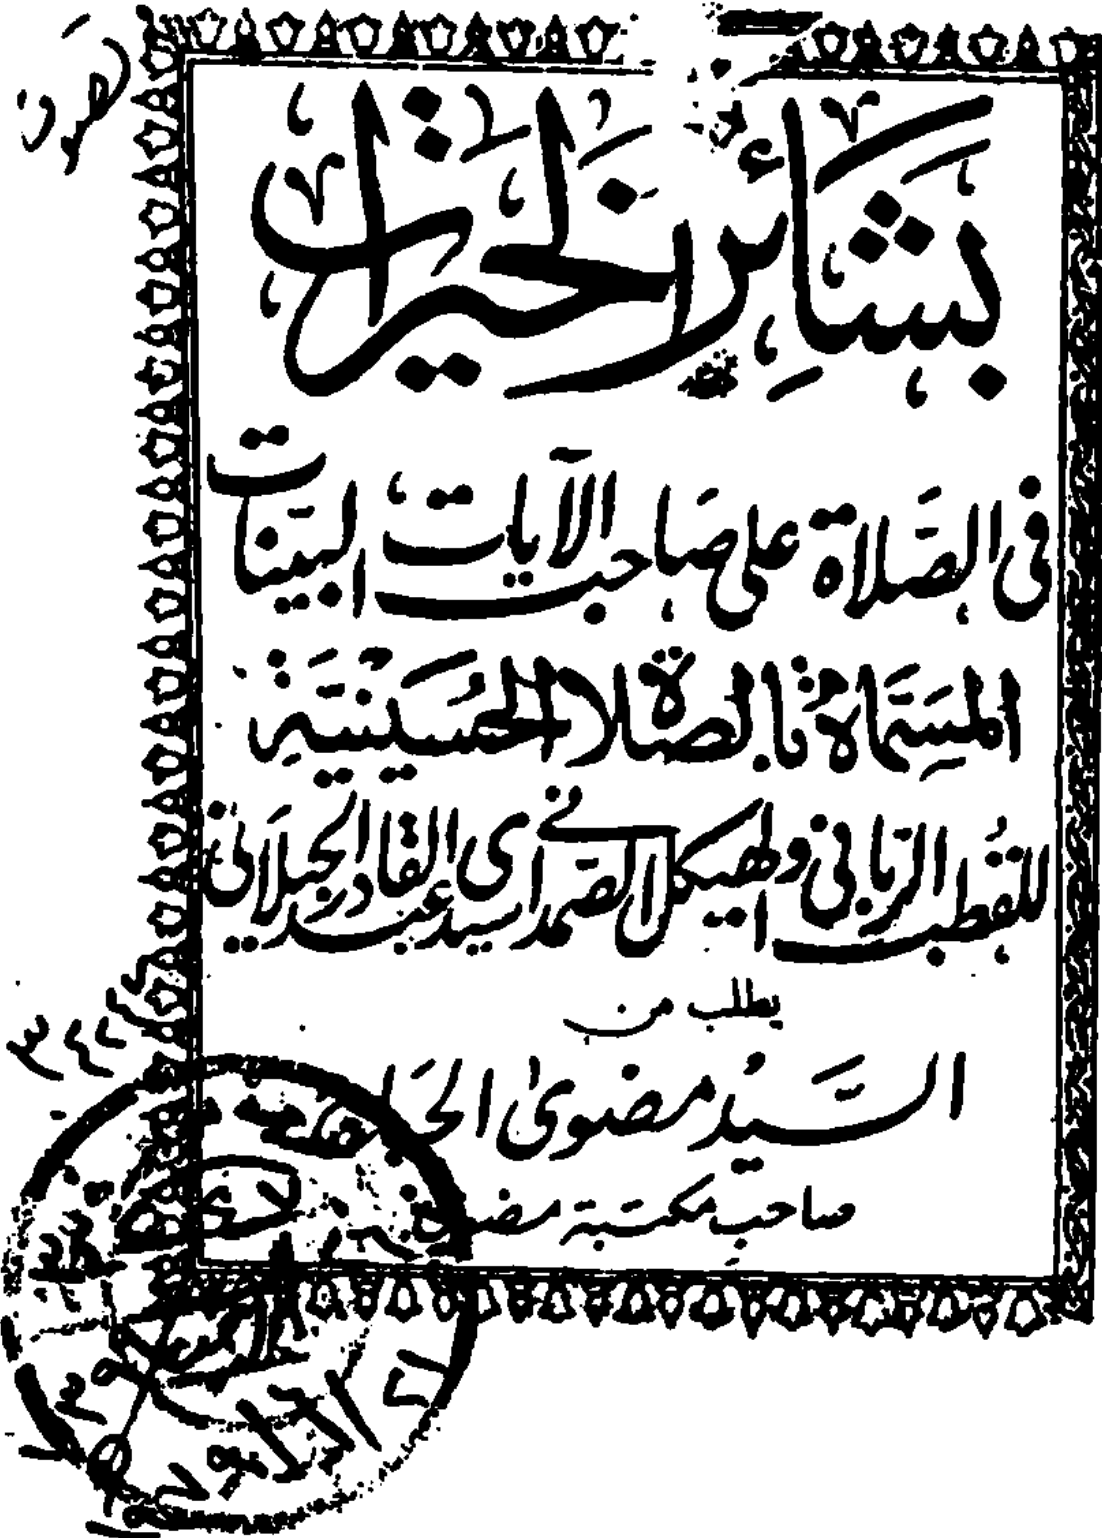 تصوف
بَشَائِرُ الْخَيْرَاتِ
فى الصَّلاة على صاحب الآيات البيّنات
المُسَمَّاةُ بالصلاة الحُسَينيَّة
للقُطب الرّبانى والهيكل الصّمدانى سيدى عبد القادر الجيلانى
يطلب من
السَّيدُ مضوىٰ
صاحب مكتبة
٣٤٢٢